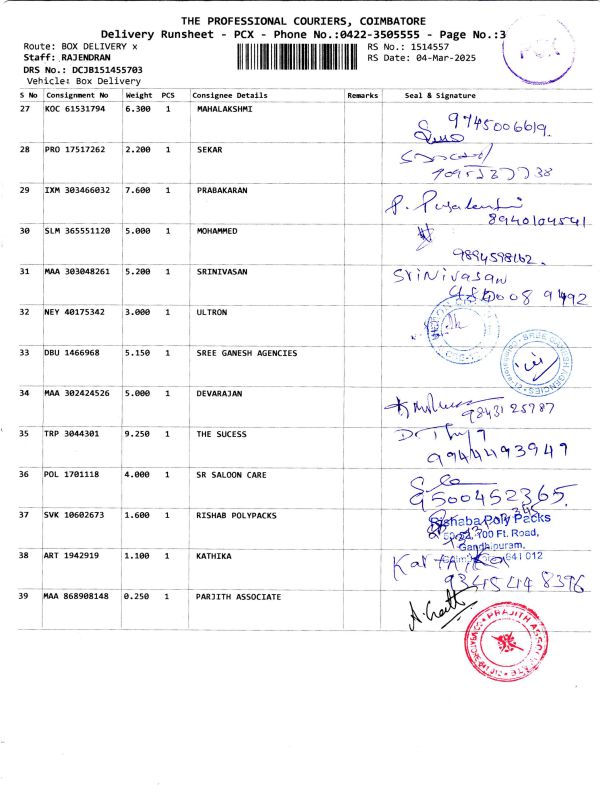 THE PROFESSIONAL COURIERS, COIMBATORE
Delivery Runsheet - PCX - Phone No.:0422-3505555 - Page No.:3
Route: BOX DELIVERY x
RS No.: 1514557
Staff: RAJENDRAN
RS Date: 04-Mar-2025
DRS No.: DCJB151455703
Vehicle: Box Delivery
PCX
S No Consignment No Weight PCS Consignee Details Remarks Seal & Signature
27 KOC 61531794 6.300 1 MAHALAKSHMI
9745006619.
28 PRO 17517262 2.200 1 SEKAR
29 IXM 303466032 7.600 1 PRABAKARAN
8940104541
30 SLM 365551120 5.000 1 MOHAMMED
9894598162.
31 MAA 303048261 5.200 1 SRINIVASAN
Srinivasan
32 NEY 40175342 3.000 1 ULTRON
33 DBU 1466968 5.150 1 SREE GANESH AGENCIES
SREE GANESH AGENCIES
34 MAA 302424526 5.000 1 DEVARAJAN
9843125787
35 TRP 3044301 9.250 1 THE SUCESS
9944493947
36 POL 1701118 4.000 1 SR SALOON CARE
9500452365.
37 SVK 10602673 1.600 1 RISHAB POLYPACKS
Rishaba Poly Packs
100 Ft. Road,
Gandhipuram,
641 012
38 ART 1942919 1.100 1 KATHIKA
Karthika
9345448396
39 MAA 868908148 0.250 1 PARJITH ASSOCIATE
PRAJITH ASSOCIATE